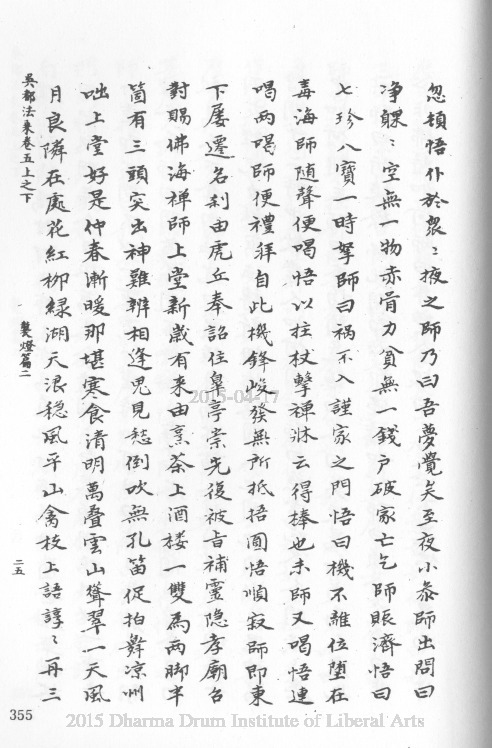 忽頓悟仆於眾〻掖之師乃曰吾夢覺矣至夜小參師出問曰
淨躶〻空無一物赤骨力貧無一錢戶破家亡乞師賑濟悟曰
七珍八寶一時拏師曰禍不入謹家之門悟曰機不離位墮在
毒海師随聲便喝悟以拄杖擊禪牀云得棒也未師又喝悟連
喝两喝師便禮拜自此機鋒峻發無所抵捂圓悟順寂師即東
下屡遷名刹由虎丘奉詔住臯亭崇先復被旨補靈隐孝廟召
對賜佛海禅師上堂新歲有来由烹茶上酒楼一雙為两脚半
箇有三頭突出神難辨相逢鬼見愁倒吹無孔笛促拍舞凉州
咄上堂好是仲春漸暖那堪寒食清明萬疊雲山聳翠一天風
月良隣在處花紅柳緑湖天浪穏風平山禽枝上語諄〻再三
吳都法乘卷五上之下
樊燈篇二
二五
355
2015-04-17
2015 Dharma Drum Institute of Liberal Arts